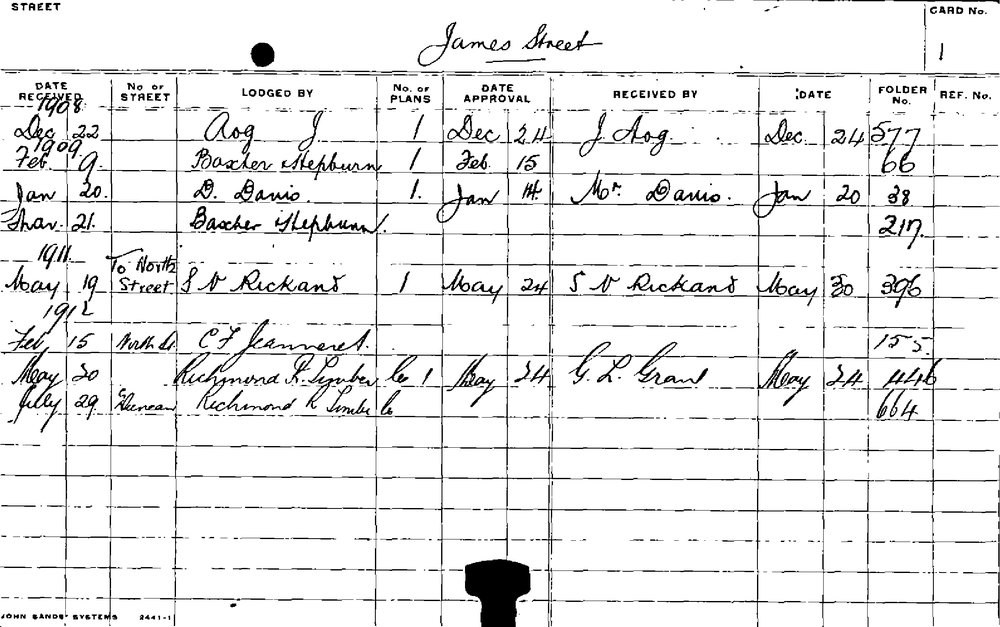 STREET
CARD No.
James Street
1
DATE RECEIVED No or STREET LODGED BY No. of PLANS DATE APPROVAL RECEIVED BY DATE FOLDER No. REF. No.
1908
Dec 22 Aog J 1 Dec 24 J. Aog Dec 24 577
1909
Feb 9. Baxcher & Hepburn 1 Feb. 15 66
Jan 20. D. Davis. 1. Jan 14. Mr. Davis. Jan 20 38
21. Baxcher & Hepburn. 217.
1911.
May 19 To North Street S V Rickard 1 May 24 S V Rickard May 30 396
1912
Feb 15 North St C F Jeanneret. 155.
May 20 Richmond R. Timber Co 1 May 24 G. L. Grant May 24 446
July 29 Duncan Richmond R Timber Co 664
JOHN SANDS' SYSTEMS 2441-1